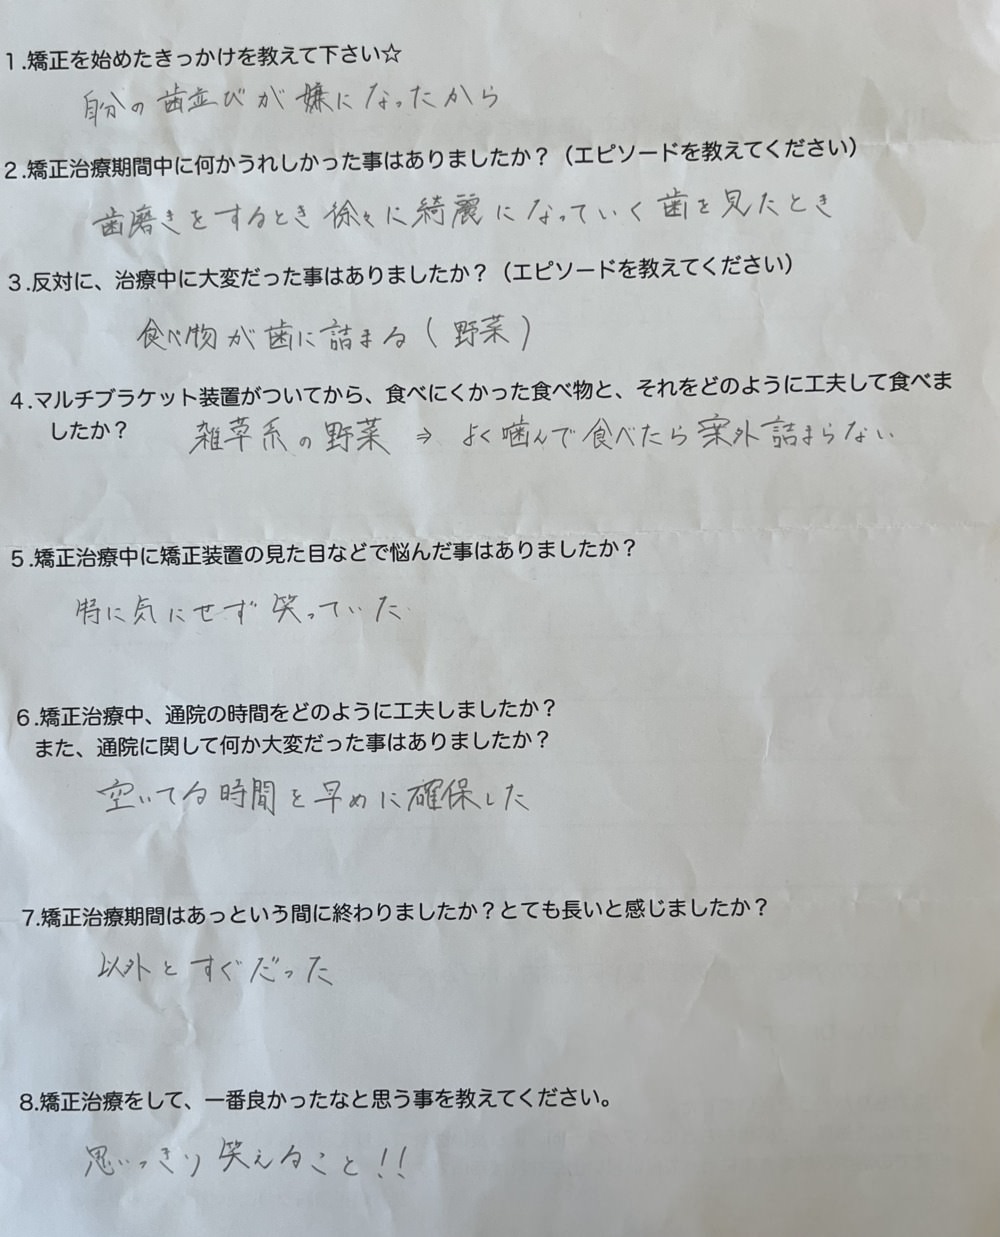 1.矯正を始めたきっかけを教えて下さい☆
自分の歯並びが嫌になったから
2.矯正治療期間中に何かうれしかった事はありましたか？（エピソードを教えてください）
歯磨きをするとき徐々に綺麗になっていく歯を見たとき
3.反対に、治療中に大変だった事はありましたか？（エピソードを教えてください）
食べ物が歯に詰まる（野菜）
4.マルチブラケット装置がついてから、食べにくかった食べ物と、それをどのように工夫して食べま
したか？ 雑草系の野菜 ⇒ よく噛んで食べたら案外詰まらない
5.矯正治療中に矯正装置の見た目などで悩んだ事はありましたか？
特に気にせず笑っていた
6.矯正治療中、通院の時間をどのように工夫しましたか？
また、通院に関して何か大変だった事はありましたか？
空いてる時間を早めに確保した
7.矯正治療期間はあっという間に終わりましたか？とても長いと感じましたか？
以外とすぐだった
8.矯正治療をして、一番良かったなと思う事を教えてください。
思いっきり笑えること!!